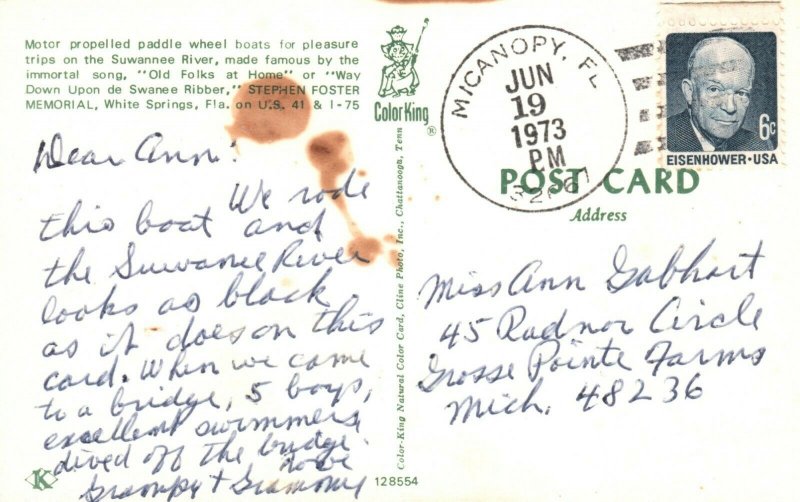 Motor propelled paddle wheel boats for pleasure
trips on the Suwannee River, made famous by the
immortal song, "Old Folks at Home" or "Way
Down Upon de Swanee Ribber," STEPHEN FOSTER
MEMORIAL, White Springs, Fla. on U.S. 41 & I-75
Color King
®
Dear Ann:
We rode
this boat and
the Suwanee River
looks as black
as it does on this
card. When we came
to a bridge, 5 boys,
excellent swimmers
dived off the bridge.
Love
Grampy + Grammy
K
128554
Color-King Natural Color Card, Cline Photo, Inc., Chattanooga, Tenn
MICANOPY, FL
JUN
19
1973
PM
32667
6c
EISENHOWER·USA
POST CARD
Address
Miss Ann Gabhart
45 Radnor Circle
Grosse Pointe Farms
Mich. 48236